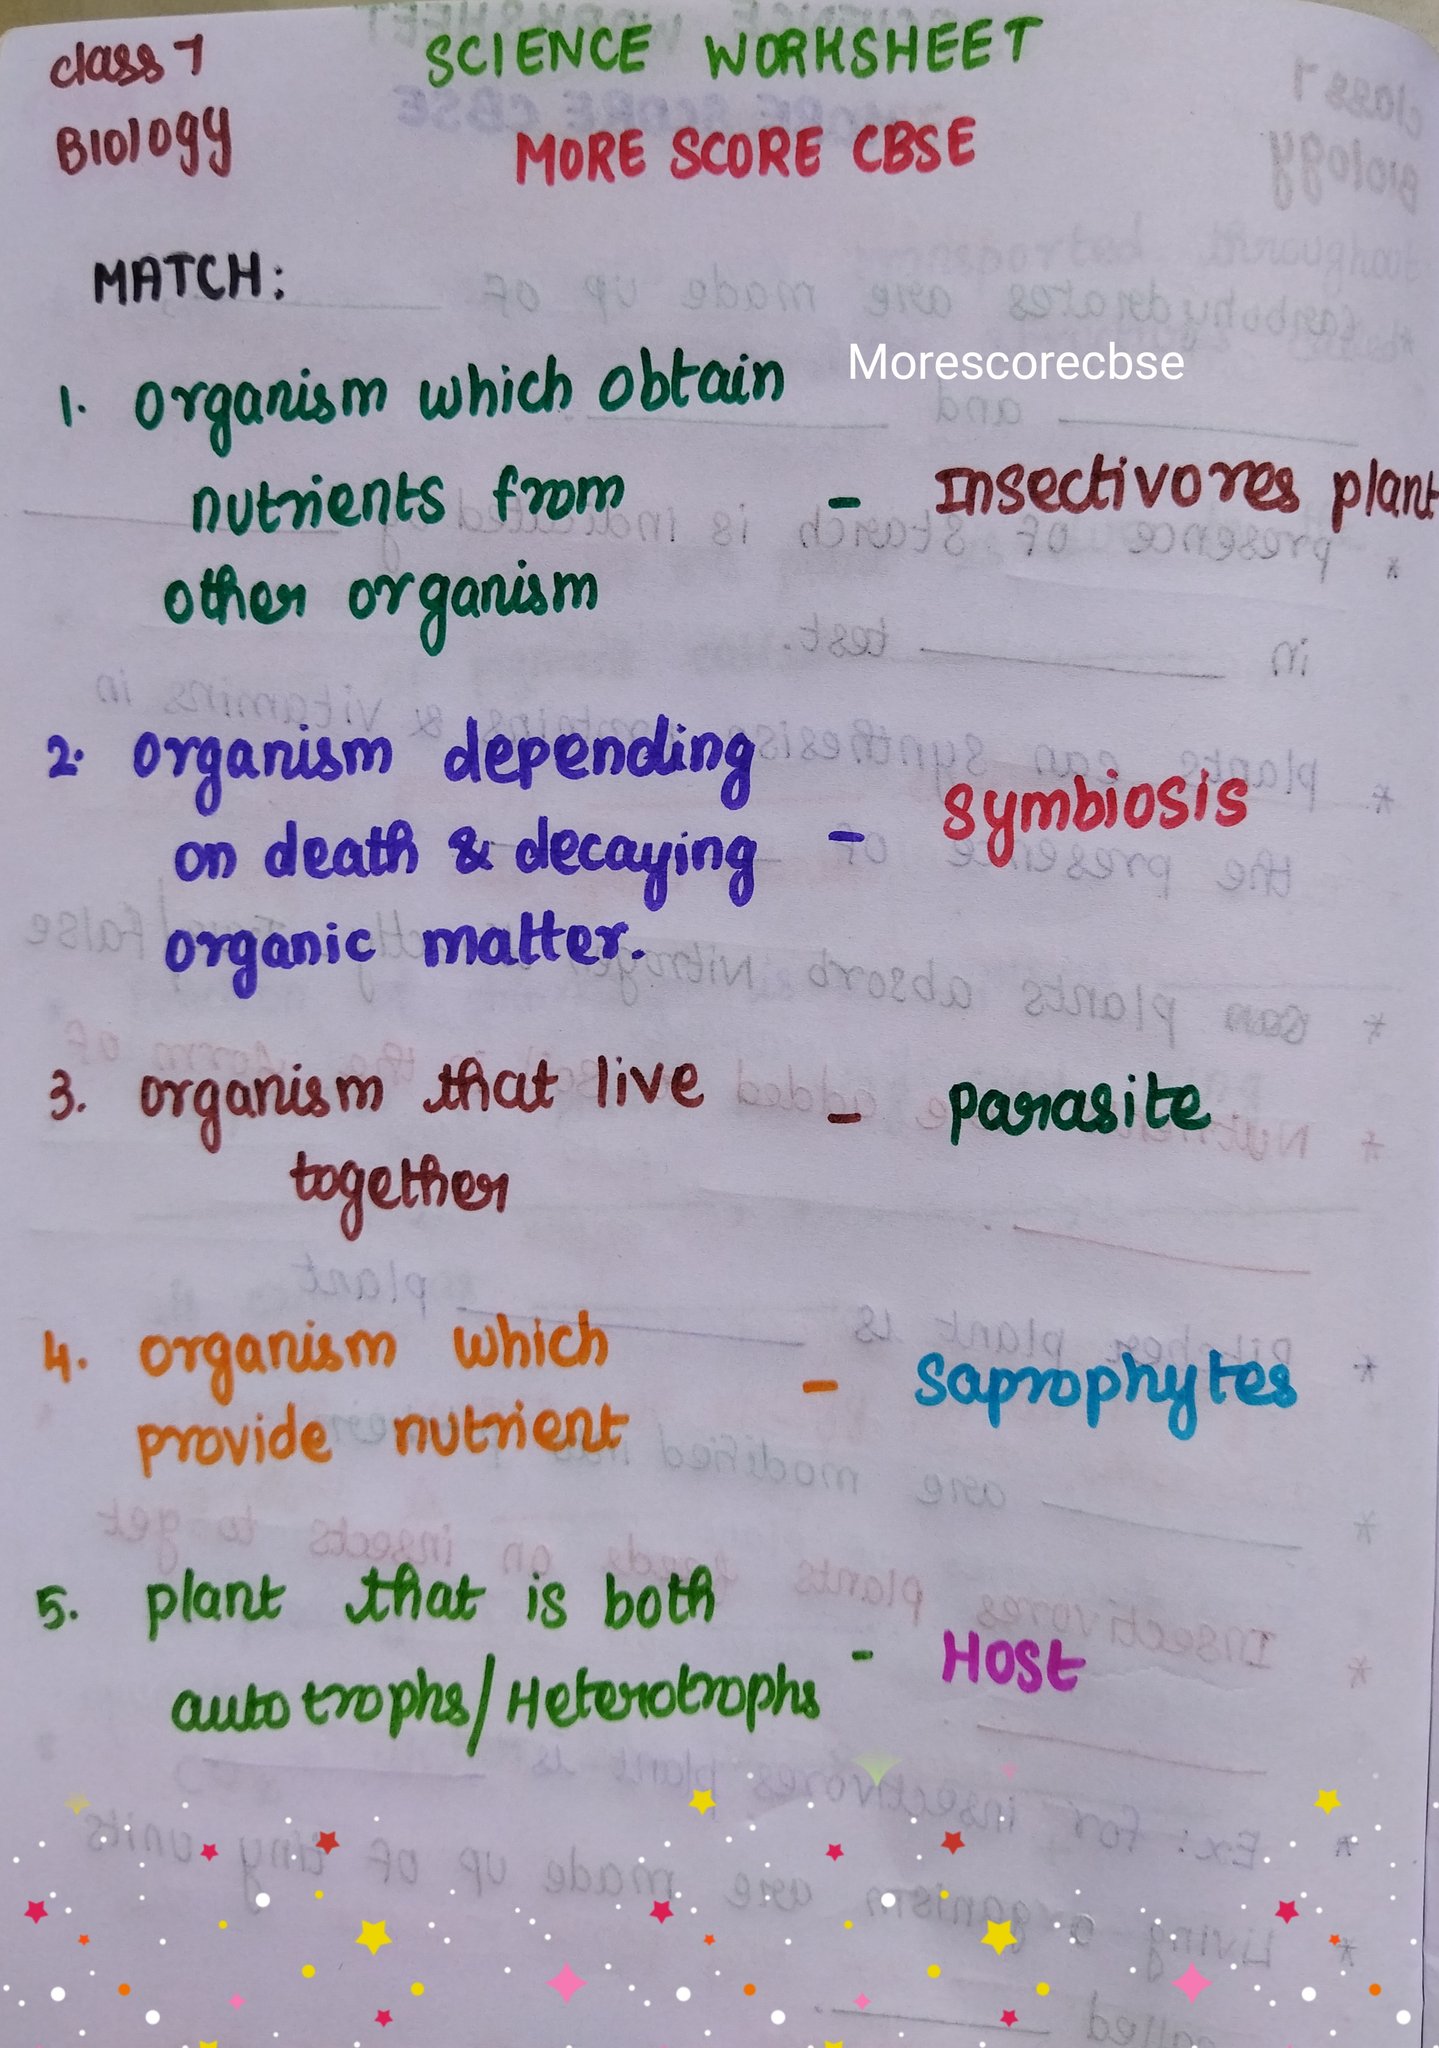 class 7
SCIENCE WORKSHEET
Biology
MORE SCORE CBSE
MATCH:
Morescorecbse
1. organism which obtain
nutrients from - Insectivores plant
other organism
2. organism depending
on death & decaying - symbiosis
organic matter.
3. organism that live - parasite
together
4. organism which
provide nutrient - saprophytes
5. plant that is both
autotrophs/Heterotrophs - Host